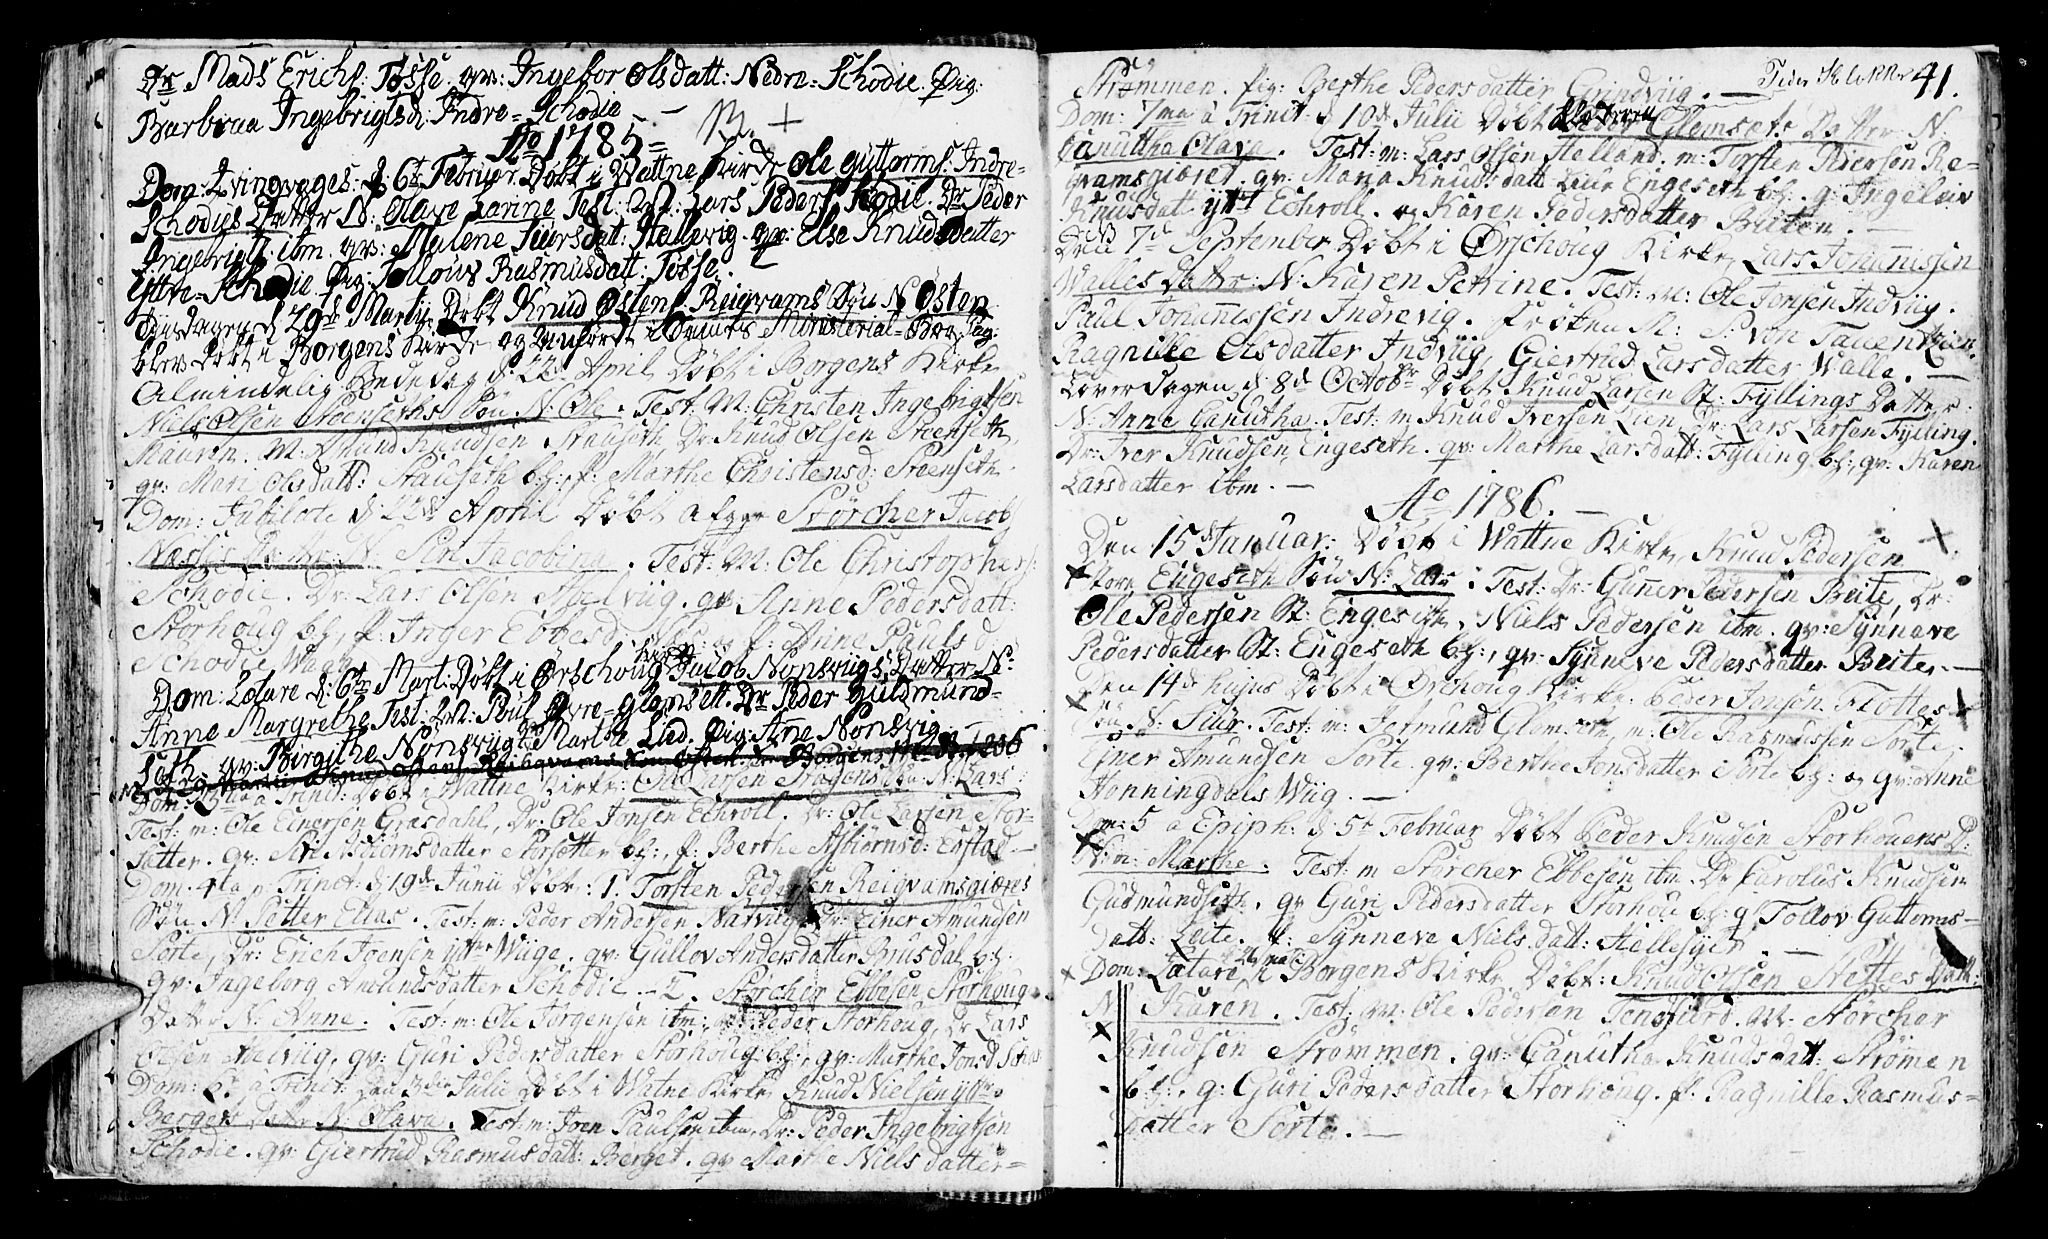 Dr Mads Erichs: Tosse. qv: Ingebor Olsdatt: Nedre-Schodie. Pig:
Barbraa Ingebrigtsd: Indre-Schodie
M. +
Ao 1785
Dom: Qvinqvages: d 6t Februar Døbt i Wattne Kirke Ole Guttorms: Indre-
Schodies Datter N: Olave Larine Test: M: Lars Peders: Schodie. Dr Peder
Ingebrigtt: ibm. qv: Malene Siursdat: Hellevig. qv: Else Knudsdatter
Yttre-Schodie Pig: Rasmusdatt: Tosse.
Tiisdagen d 29de Martij Døbt Knud Østens: Reiqvams Søn N Østen
blev døbt i Borgens Kirke og anført i Ministerial-Bog: Pag:
Almindelig Bededag d: 22d April Døbt i Borgens Kirke
Niels Olsen Steenseths Søn. N: Ole. Test: M: Christen Ingebrigtsen
Mauren. M: Amund Knudsen Strauseth, Dr: Knud Olsen Steenseth
qv: Mari Olsdatt: Strauseth bg:, p: Marthe Christensd: Steenseth.
Dom: Jubilate d 22d April Døbt Størcher Jacobs
Næsses N: Siri Jacobina. Test: M: Ole Christophers:
Schodie. Dr: Lars Olsen Moelviig. qv: Anne Pedersdatt:
Storhoug bg:, p: Inger Ebbesd: og p: Anne Paulsd.
Schodie Waag
Dom: Lætare d: 6te Mart: Døbt i Ørschoug Kirke Jacob Nonsviigs Datter N:
Anne Margrethe Test: M: Poul Øvre-Glomsett. Dr Peder Guldmund-
seth. qv: Birgithe Nonsviig Martha Lied. Pig: Ane Nonsvig
Dom: a Trinit: Døbt i Wattne Kirke: Ole Larsen Søn N: Lars
Test: m: Ole Einersen Græsdahl, Dr: Ole Jonsen Echroll. Dr: Ole Larsen Stor-
sætter. qv: Siri Asbiørnsdatter Storsætter bg:, p: Berthe Asbiørnsd: Lystad
Dom. 4ta p. Trinit: d 19de Junii Døbt: 1. Torsten Pedersen Reiqvamsgiæres
Søn N: Petter Elias. Test: m: Peder Andersen Dr: Einer Amundsen
Sorte, Dr: Erich Joensen ytre Wiige. qv: Gullov Andersdatter Brusdal bg:
qv: Ingeborg Amundsdatter Schodie. - 2. Størcher Ebbesen Storhoug
Datter N: Anne. Test: m: Ole Jørgensen ibm: Peder Storhoug, Dr Lars
Olsen Moelviig, qv: Guri Pedersdatter Storhoug bg:, qv: Marthe Jonsd
Dom: 6t a Trinit: den 3die Julii Døbt i Watne Kirke Knud Nielsen ytre
Berges Datter N Olava. Test: m: Joen Paulsen ibm, Dr: Peder Ingebrigtsen
Schodie. qv: Giertrud Rasmusdatt: Berget. qv Marthe Nielsdatter-
41.
Strømmen. pig: Berthe Pedersdatter Grindviig.
Dom: 7ma a Trinit: d 10d Julii Døbt Glomsets Datter N:
Canutthe Olava. Test: m: Lars Olsen Helland. m: Torsten Pedersen Re-
qvamsgiæret. qv: Maria Knudsdatt Engeseth bg. q: Ingelav
Knudsdat ytt Echroll. og Karen Pedersdatter Beiten.
Den 7d September Døbt i Ørschoug Kirke, Lars Johannissen
Walles Datter: N: Karen Petrine. Test: M: Ole Jonsen Indviig.
Paul Johannissen Indrevig. Frøken M: S: von Tauentzien.
Ragnille Olsdatter Indviig, Giertrud Larsdatter Walle.
Løverdagen d 8d Octobr Døbt: Knud Larsen St: Fyllings Datter
N: Anne Canutha. Test: m Knud Iversen Lien, Dr: Lars Larsen Fylling.
Dr: Iver Knudsen Engeseth. qv: Marthe Larsdatt: Fylling bg:, qv: Karen
Larsdatter ibm.
Ao 1786.
Den 15d Januar: Døbt i Wattne Kirke, Knud Pedersen
Store Engeseth Søn N: Lars. Test: Dr: Gunner Pedersen Beite, Dr:
Ole Pedersen St: Engeseth, Niels Pedersen ibm. qv: Synnøve
Pedersdatter St: Engeseth bg:, qv: Synneve Pedersdatter Beite.
Den 14d hujus Døbt i Ørschoug Kirke: Peder Jansen Flottes
Søn N. Siur. Test: m: Jetmund Glomseth, m: Ole Rasmussen Sorte,
Einer Amundsen Sorte. qv: Berthe Jonsdatter Sorte bg: og qv: Anne
Honningdals Wiig.
Dom: 5 a Epiph: d: 5t Februar Døbt Peder Knudsen Storhouens D:
N:n: Marthe. Test: m Størcher Ebbesen ibm. Dr Carolus Knudsen
Gudmundseth. qv Guri Pedersdatter Storhou bg: q Tollov Guttorms-
datt: Leite. p: Synneve Nielsdatt: Hellesylt.
Dom: Lætare i Borgens Kirke Døbt: Knud Olsen Nettes Datt:
N Karen. Test: m: Ole Pedersen Tenfiord. M: Størcher
Knudsen Strømmen. qv: Canutha Knudsdatt: Strømen
bg. q: Guri Pedersdatter Storhoug. p. Ragnille Rasmus-
datter Sorte.